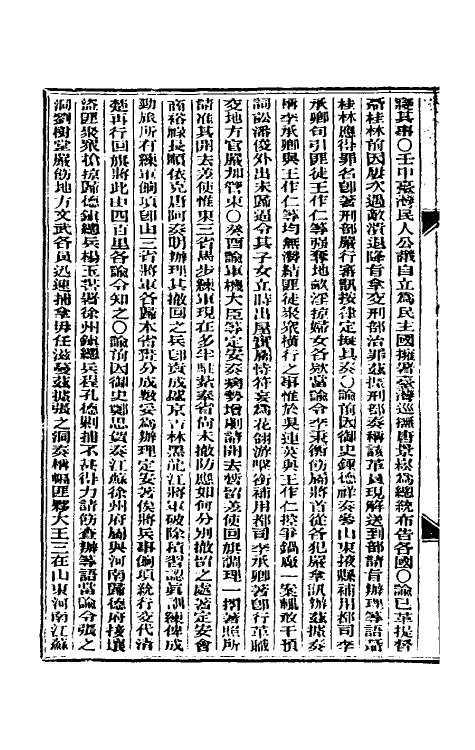 寢其事〇壬申臺灣民人公議自立為民主國擁署臺灣巡撫唐景崧為總統布告各國〇諭已革提督
聶桂林前因屢次遇敵潰退降旨拿交刑部治罪茲據刑部奏稱該革員現解送到部請旨辦理等語聶
桂林應得罪名卽著刑部嚴行審訊按律定擬具奏〇諭前因御史鍾德祥奏參山東掖縣補用都司李
承卿句引匪徒王作仁等強奪地畝淫掠婦女各欵當諭令李秉衡飭屬將首從各犯嚴拿訊辦茲據奏
稱李承卿與王作仁等均無潛結匪徒聚眾橫行之事惟於吳連英與王作仁控爭鍋廠一案輒敢干預
詞訟潘俊外出未歸逼令其子女立時出屋實屬恃符妄為花翎游擊銜補用都司李承卿著卽行革職
交地方官嚴加管束〇癸酉諭軍機大臣等定安奏病勢增劇請開去督留差使回旗調理一摺著照所
請准其開去差使惟東三省馬步練軍現在多半駐紮奉省尚未撤防應如何分別撤留之處著定安會
商裕祿長順依克唐阿奏明辦理其撤回之兵卽責成盛京吉林黑龍江將軍破除積習認真訓練俾成
勁旅所有練軍餉項卽由三省將軍各歸本省督分成數妥為辦理定安著俟將兵事餉項統行交代清
楚再行回旗將此由四百里各諭令知之〇諭前因御史鄭思賀奏江蘇徐州府屬與河南歸德府接壤
盜匪聚眾搶掠歸德鎮總兵楊玉書署徐州鎮總兵程孔德剿捕不甚得力請飭查辦等語當諭令張之
洞劉樹堂嚴飭地方文武各員迅速捕拿毋任滋蔓茲據張之洞奏稱幅匪夥大王三在山東河南江蘇